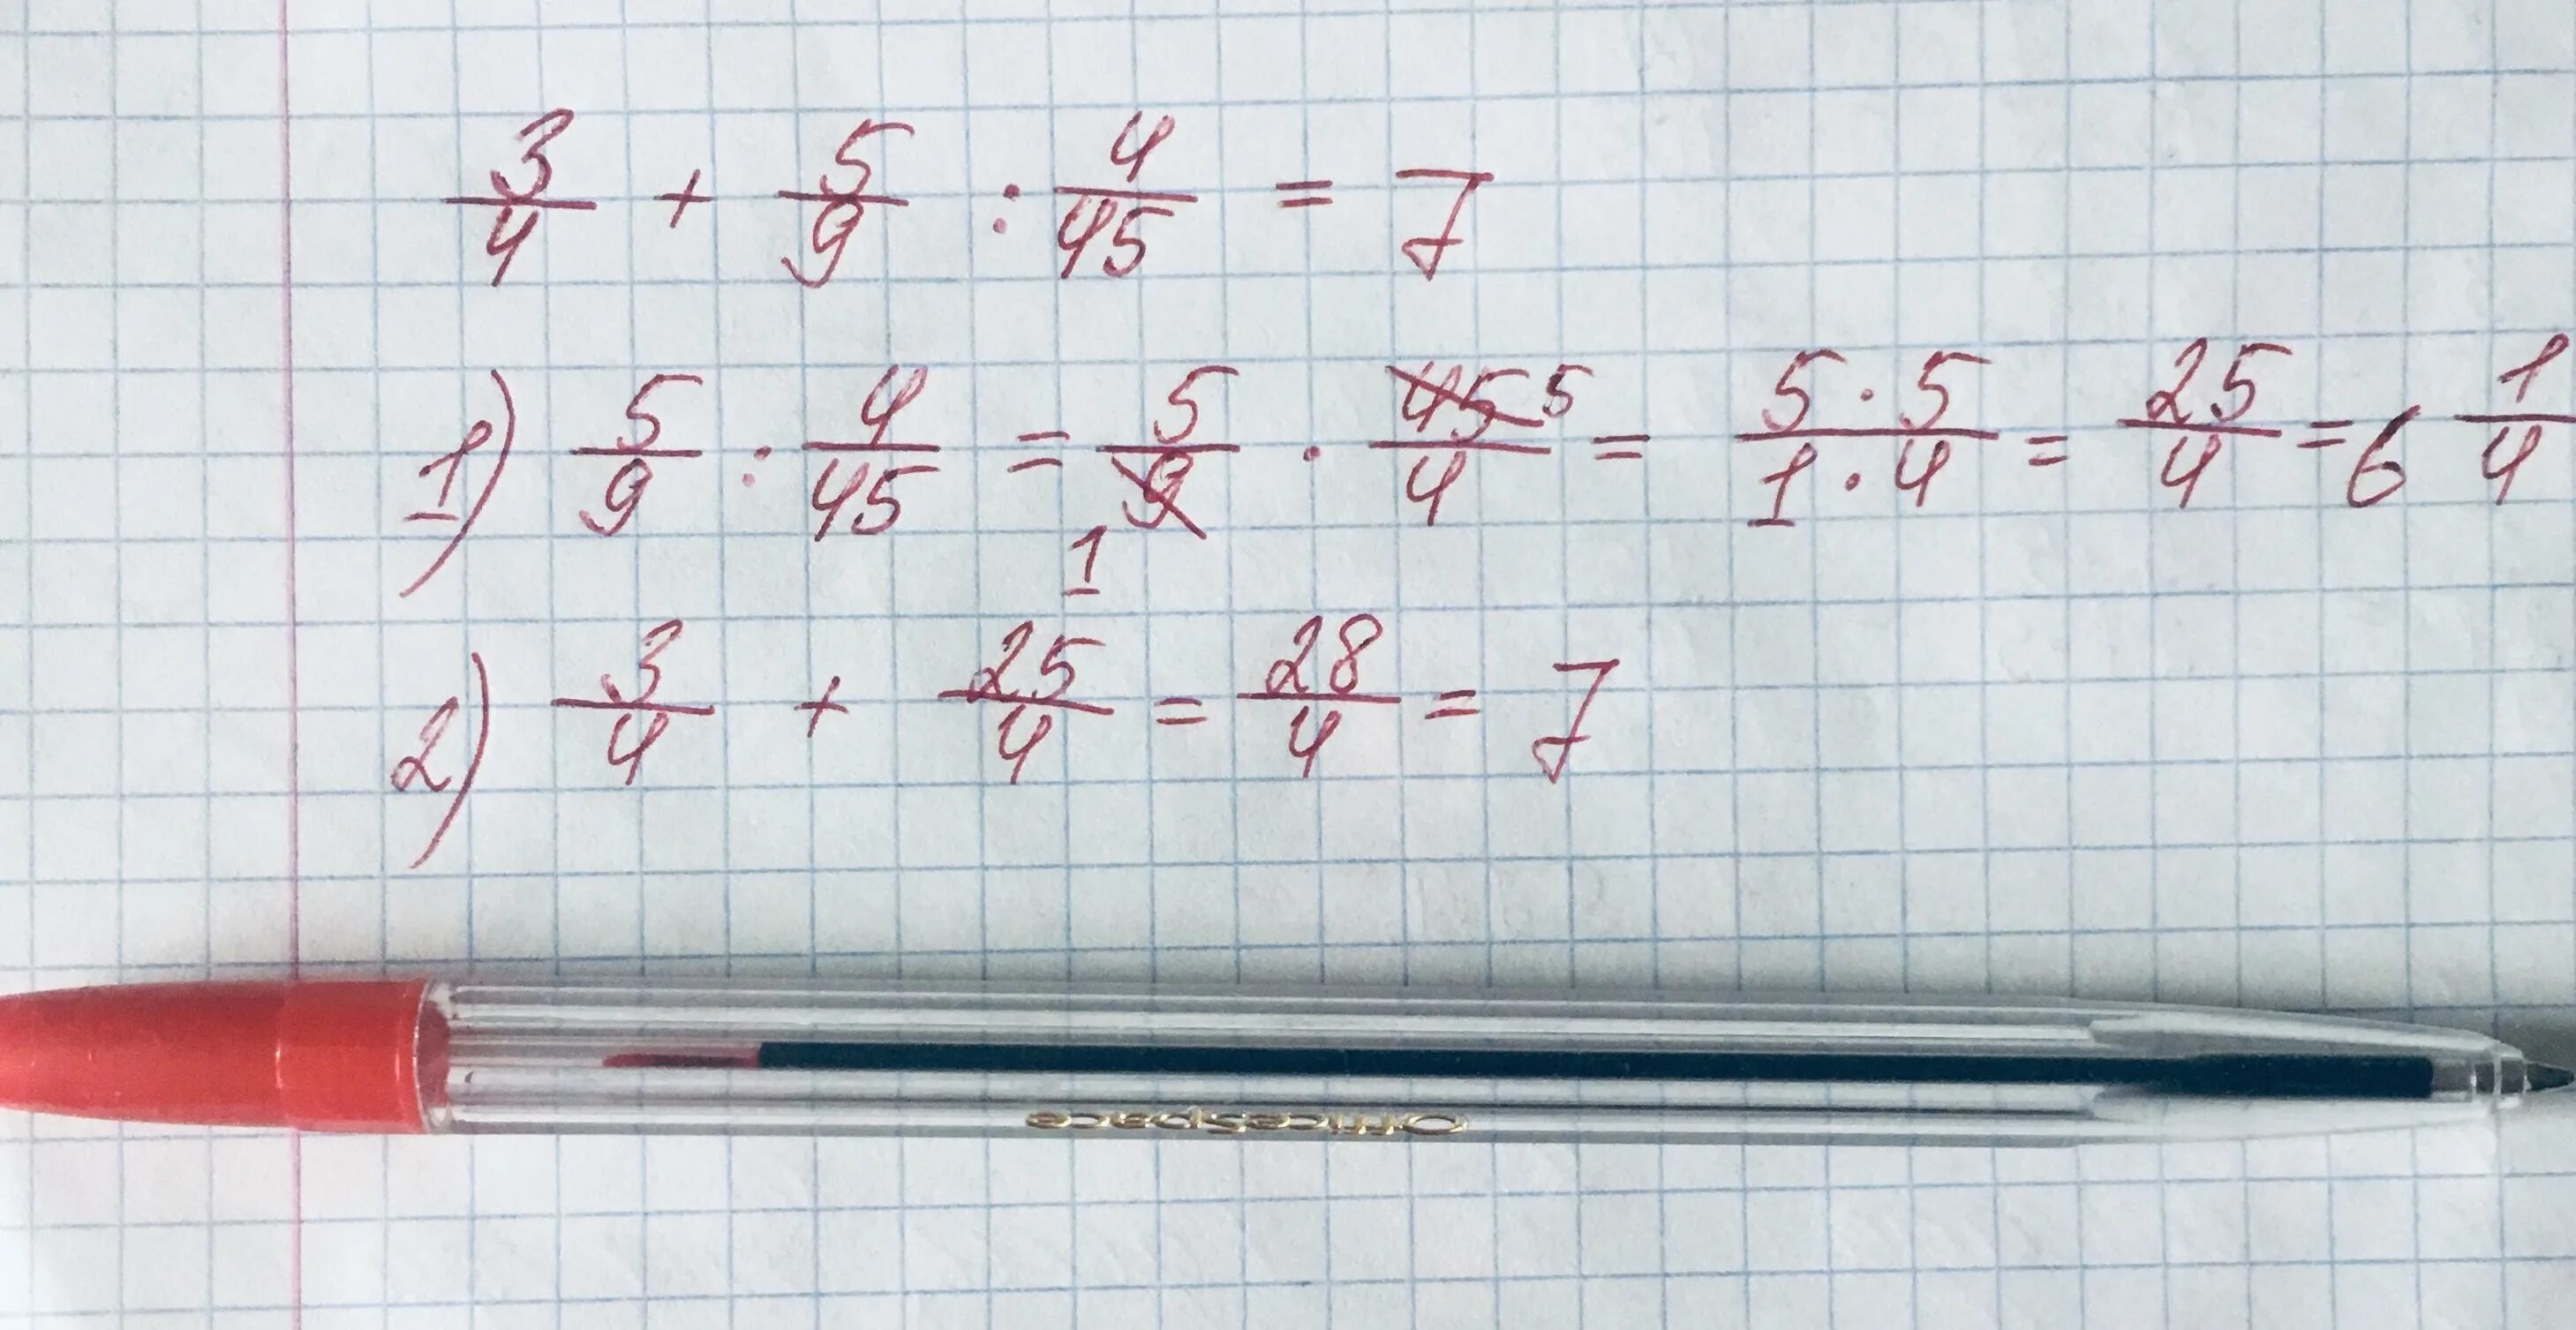 3/4 + 5/9 : 4/45 = 7
1) 5/9 : 4/45 = 5/9 1 · 45/4 5 = 5·5/1·4 = 25/4 = 6 1/4
2) 3/4 + 25/4 = 28/4 = 7
OfficeSpace